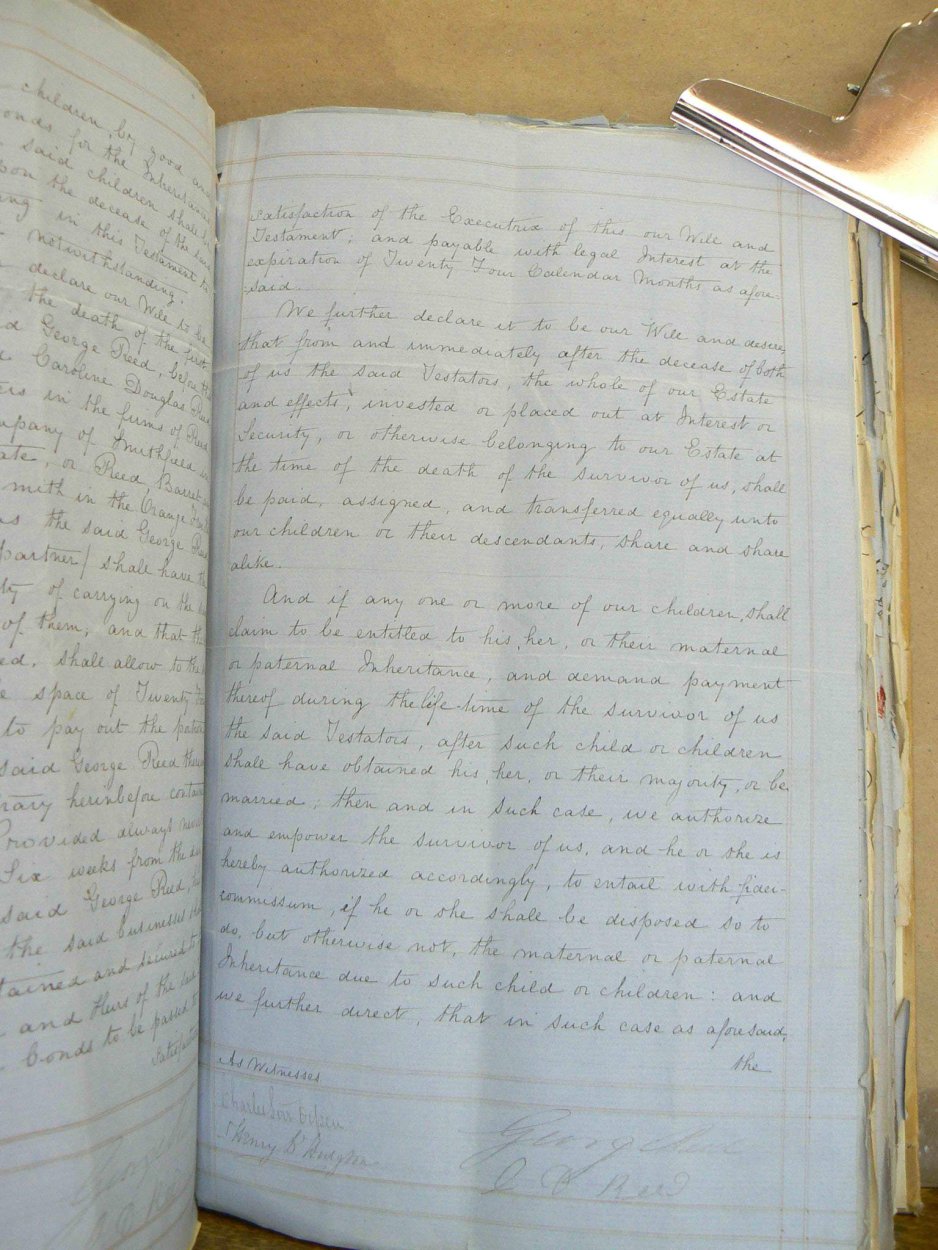 children, by good and
onds for the Inheritance
said children shall be
pon the decease of the
ing in this Testament to
notwithstanding.
declare our Will to be
the death of the first
d George Reed, before the
Caroline Douglas Reed
in the firms of Reed
mpany of Smithfield in
ate, or Reed, Barret and
mith in the Orange Free
as the said George Reed
partner) shall have the
ty of carrying on the
of them, and that the
ed, shall allow to the
e space of Twenty Four
to pay out the pater
said George Reed there
trary herinbefore contain
Provided always never
Six weeks from the
said George Reed,
the said businesses
tained and secured to
and Heirs of the said
bonds to be passed to
satisfactn
satisfaction of the Executrix of this our Will and
Testament; and payable with legal Interest at the
expiration of Twenty Four Calendar Months as afore-
said.
We further declare it to be our Will and desire,
that from and immediately after the decease of both
of us the said Testators, the whole of our Estate
and effects, invested or placed out at Interest or
Security, or otherwise belonging to our Estate at
the time of the death of the survivor of us, shall
be paid, assigned, and transferred equally unto
our children or their descendants, share and share
alike.
And if any one or more of our children, shall
claim to be entitled to his, her, or their maternal
or paternal Inheritance, and demand payment
thereof during the life-time of the survivor of us
the said Testators, after such child or children
shall have obtained his, her, or their majority, or be
married; then and in such case, we authorize
and empower the survivor of us, and he or she is
hereby authorized accordingly, to entail with fidei-
commissum, if he or she shall be disposed so to
do, but otherwise not, the maternal or paternal
Inheritance due to such child or children: and
we further direct, that in such case as aforesaid,
the
As Witnesses
Charles
Henry Hodgson
George Reed
C D Reed